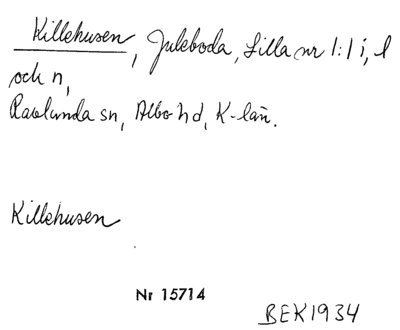 Killehusen, Juleboda, Lilla nr 1:1 i, l
och n,
Ravlunda sn, Albo hd, K-län.
Killehusen
Nr 15714
BEK 1934